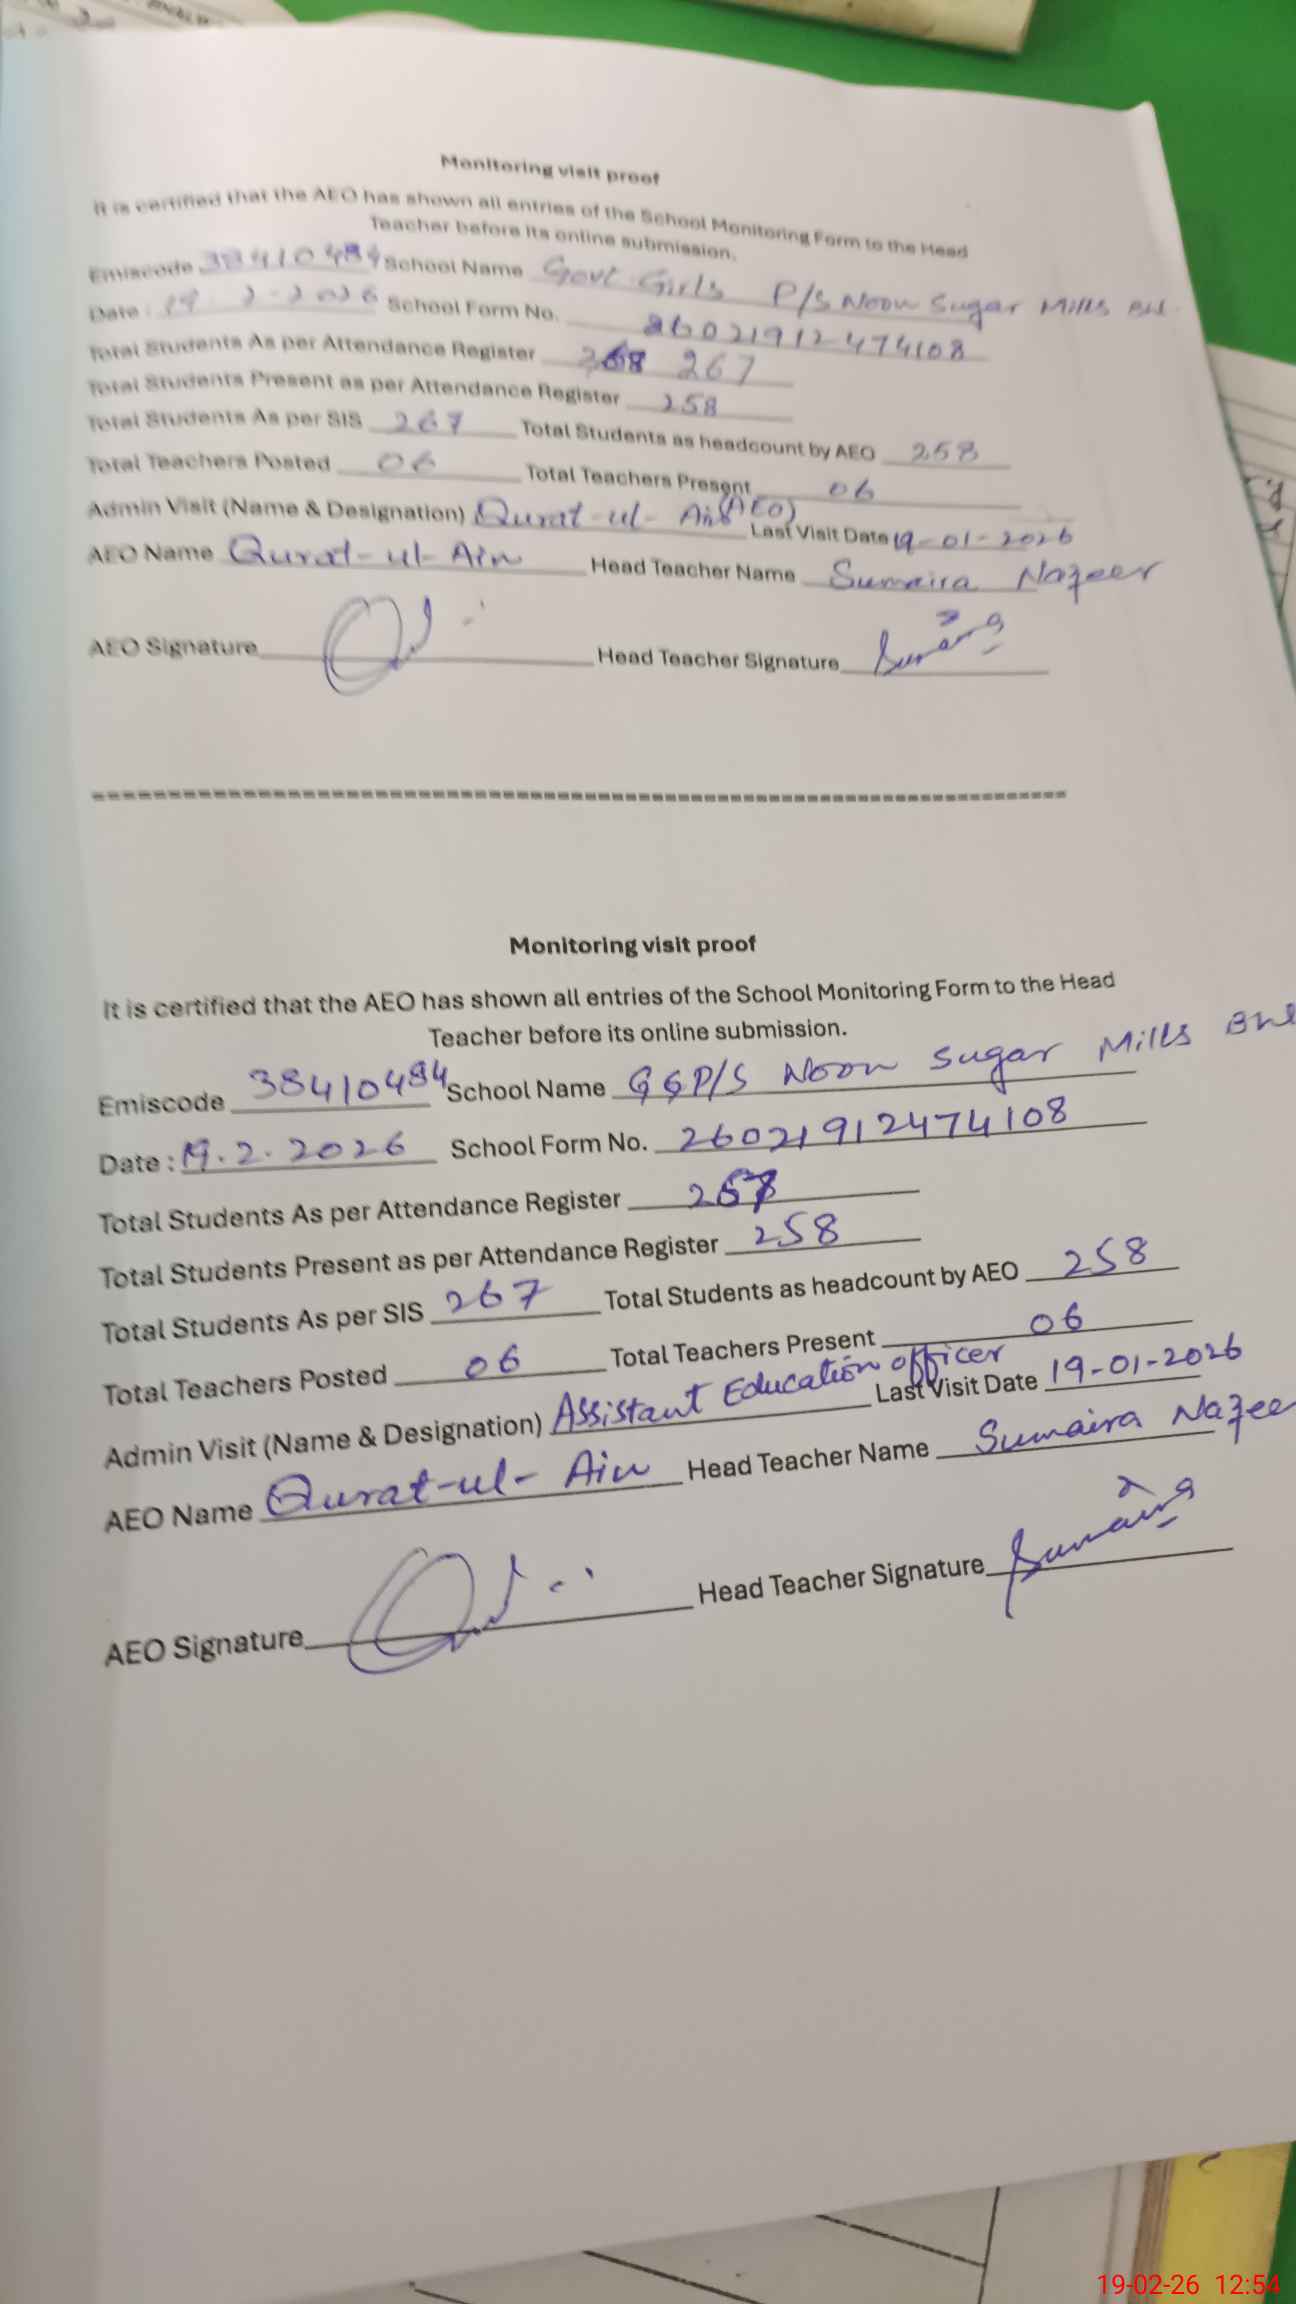 Monitoring visit proof
It is certified that the AEO has shown all entries of the School Monitoring Form to the Head
Teacher before its online submission.
Emiscode 38410484 School Name Govt. Girls P/S Noon Sugar Mills BHL
Date : 19.2.2026 School Form No. 260219124741​08
Total Students As per Attendance Register 267
Total Students Present as per Attendance Register 258
Total Students As per SIS 267 Total Students as headcount by AEO 258
Total Teachers Posted 06 Total Teachers Present 06
Admin Visit (Name & Designation) Qurat-ul-Ain (AEO) Last Visit Date 19-01-2026
AEO Name Qurat-ul-Ain Head Teacher Name Sumaira Nazeer
AEO Signature Head Teacher Signature
Monitoring visit proof
It is certified that the AEO has shown all entries of the School Monitoring Form to the Head
Teacher before its online submission.
Emiscode 38410484 School Name GGP/S Noon Sugar Mills
Date : 19.2.2026 School Form No. 26021912474108
Total Students As per Attendance Register
Total Students Present as per Attendance Register 258
Total Students As per SIS 267 Total Students as headcount by AEO 258
Total Teachers Posted 06 Total Teachers Present 06
Admin Visit (Name & Designation) Assistant Education officer Last Visit Date 19-01-2026
AEO Name Qurat-ul-Ain Head Teacher Name Sumaira Nazeer
AEO Signature Head Teacher Signature Sumaira
19-02-26 12:54